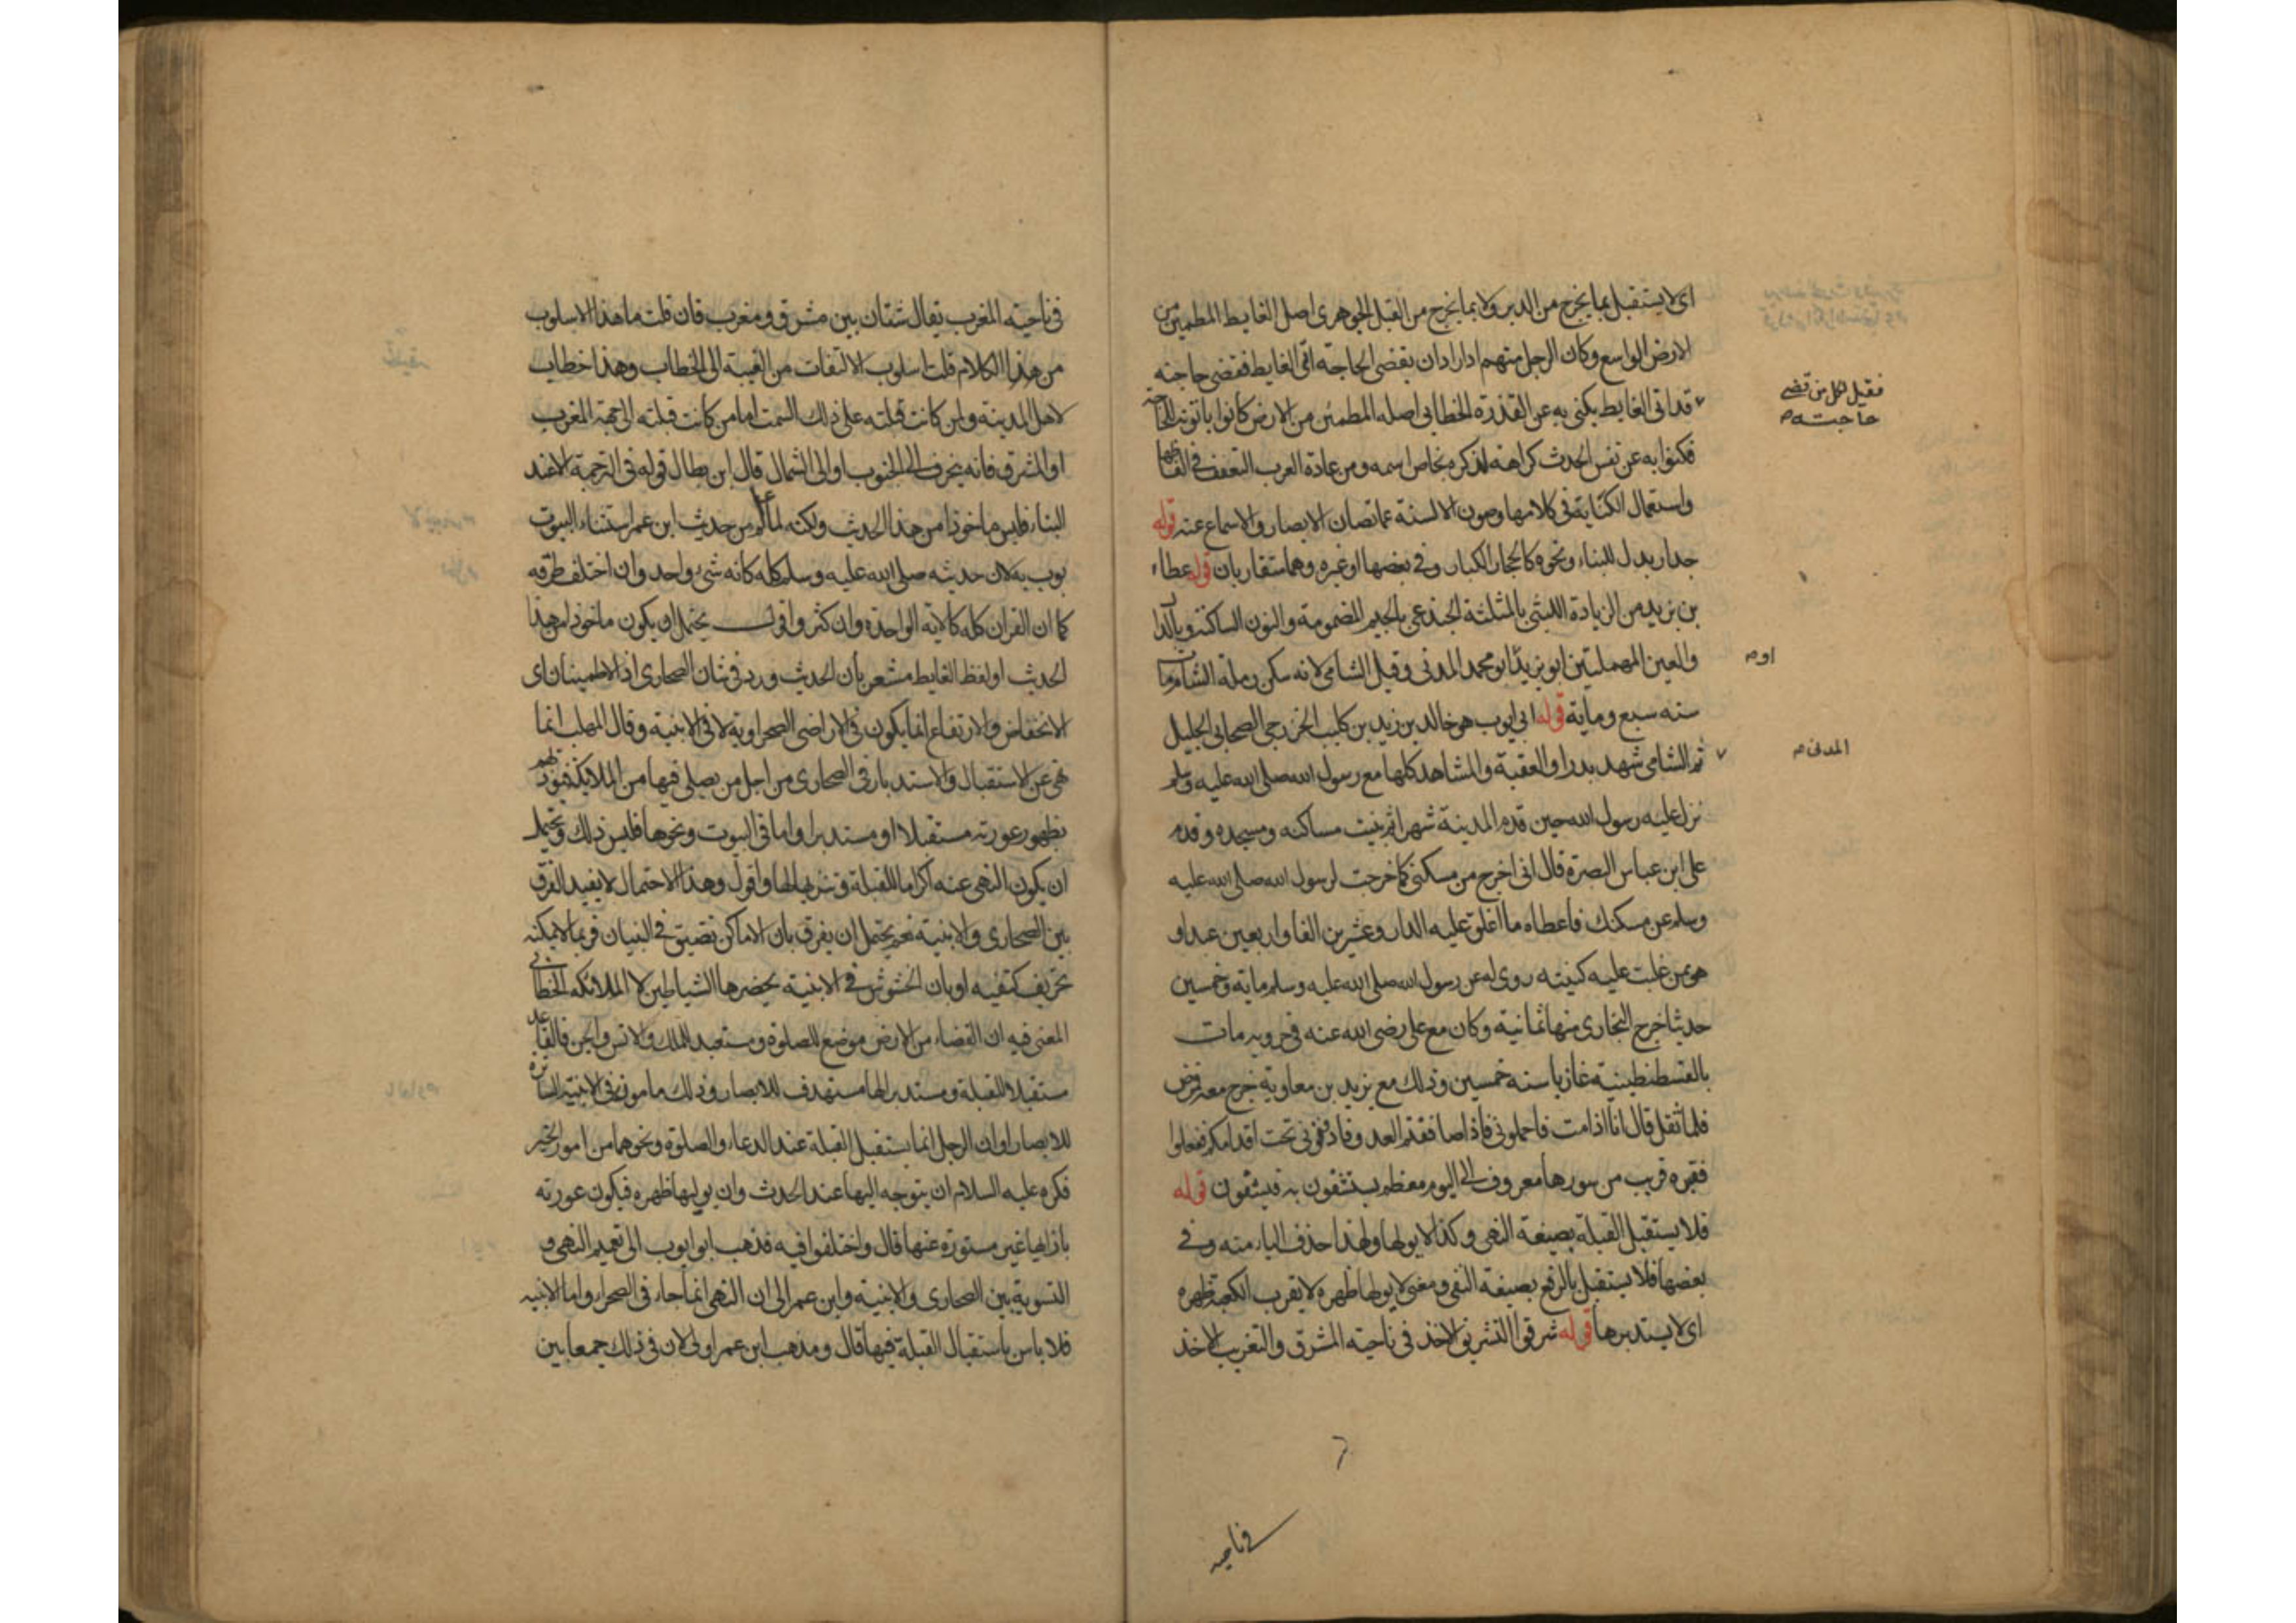 اى لا يستقبل بما يخرج من الدبر ولا بما يخرج من القبل الجوهرى اصل الغايط المطمين من
الارض الواسع وكان الرجل منهم اذا اراد ان يقضى الحاجة اتى الغايط فقضى حاجته
فقيل لكل من قضى
حاجته م
قد اتى الغايط يكنى به عن القذرة الخطابى اصله المطمئن من الارض كانوا ياتونه للحاجة
فكنوا به عن نفس الحدث كراهة لذكره بخاص اسمه ومن عادة العرب التعفف فى الفاظها
واستعمال الكناية فى كلامها وصون الالسنة عما تصان الابصار والاسماع عنه قوله
جدار بدل للبناء ونحوه كالحجار الكبار وفى بعضها او غيره وهما متقاربان قوله عطاء
بن يزيد من الزيادة الليثى بالمثلثة الجندعى بالجيم المضمومة والنون الساكنة وبالدال
والعين المهملتين ابو يزيد ابو محمد المدنى وقيل الشامى لانه سكن رملة الشام مات
او م
سنه سبع وماية قوله ابى ايوب هو خالد بن زيد بن كليب الخزرجى الصحابى الجليل
المدنى م
ثم الشامى شهد بدرا والعقبة والمشاهد كلها مع رسول الله صلى الله عليه وسلم
نزل عليه رسول الله حين قدم المدينة شهرا ثم بنيت مساكنه ومسجده وقدم
على ابن عباس البصرة قال انى اخرج من مسكنى كما خرجت لرسول الله صلى الله عليه
وسلم عن مسكنك فاعطاه ما اغلق عليه الدار وعشرين الفا واربعين عبدا و
هو ممن غلبت عليه كنيته روى له عن رسول الله صلى الله عليه وسلم ماية وخمسين
حديثا خرج البخارى منها ثمانية وكان مع على رضى الله عنه فى حروبه مات
بالقسطنطينية غازيا سنه خمسين وذلك مع يزيد بن معاوية خرج معه فمرض
فلما ثقل قال انا اذا مت فاحملونى فاذا صاففتم العدو فادفنونى تحت اقدامكم ففعلوا
فقبره قريب من سورها معروف الى اليوم معظم يستشفون به فيشفون قوله
فلا يستقبل القبلة بصيغة النهى وكذا لا يولها ولهذا حذف الياء منه وفى
بعضها فلا يستقبل بالرفع بصيغة النفى ومعنى لا يولها ظهره لا يقرب الكعبة ظهره
اى لا يستدبرها قوله شرقوا التشريق الاخذ فى ناحيته المشرق والتغريب الاخذ
فى ناحيه
فى ناحيته المغرب يقال شتان بين مشرق ومغرب فان قلت ما هذا الاسلوب
من هذا الكلام قلت اسلوب الالتفات من الغيبة الى الخطاب وهذا خطاب
لاهل المدينة ولمن كانت قبلته على ذلك السمت اما من كانت قبلته الى جهة المغرب
او المشرق فانه ينحرف الى الجنوب او الى الشمال قال ابن بطال قوله فى الترجمة الا عند
البناء فليس ماخوذا من هذا الحديث ولكنه لما علم من حديث ابن عمر استثناء البيوت
بوب به لان حديثه صلى الله عليه وسلم كله كانه شئ واحد وان اختلف طرقه
كما ان القران كله كالاية الواحدة وان كثر واقول يحتمل ان يكون ماخوذا من هذا
الحديث اولفظ الغايط مشعر بان الحديث ورد فى شان الصحارى اذ الاطمينان اى
الانخفاض والارتفاع انما يكون فى الاراضى الصحراوية لا فى الابنية وقال المهلب انما
نهى عن الاستقبال والاستدبار فى الصحارى من اجل من يصلى فيها من الملايكة فيوذيهم
بظهور عورته مستقبلا او مستدبرا واما فى البيوت ونحوها فليس ذلك ويحتمل
ان يكون النهى عنه اكراما للقبلة وتنزيها لها واقول وهذا الاحتمال لا يفيد الفرق
بين الصحارى والابنية نعم يحتمل ان يفرق بان الاماكن تضيق فى البنيان فربما لا يمكنه
تحريف كنفيه او بان الحشوش فى الابنية يحضرها الشياطين لا الملائكه الخطابى
المعنى فيه ان الفضاء من الارض موضع للصلوة ومستعبد للملك والانس والجن فالقاعد
مستقبلا للقبلة ومستدبرا لها مستهدف للابصار وذلك مامون فى الابنية الساترة
للابصار او ان الرجل انما يستقبل القبلة عند الدعاء والصلوة ونحوهما من امور الخير
فكره عليه السلام ان يتوجه اليها عند الحدث وان يوليها ظهره فيكون عورته
بازايها غير مستورة عنها قال واختلفوا فيه فذهب ابو ايوب الى تعميم النهى و
التسوية بين الصحارى والابنية وابن عمر الى ان النهى انما جاء فى الصحراء واما الابنيه
فلا باس باستقبال القبلة فيها قال ومذهب ابن عمر اولى لان فى ذلك جمعا بين